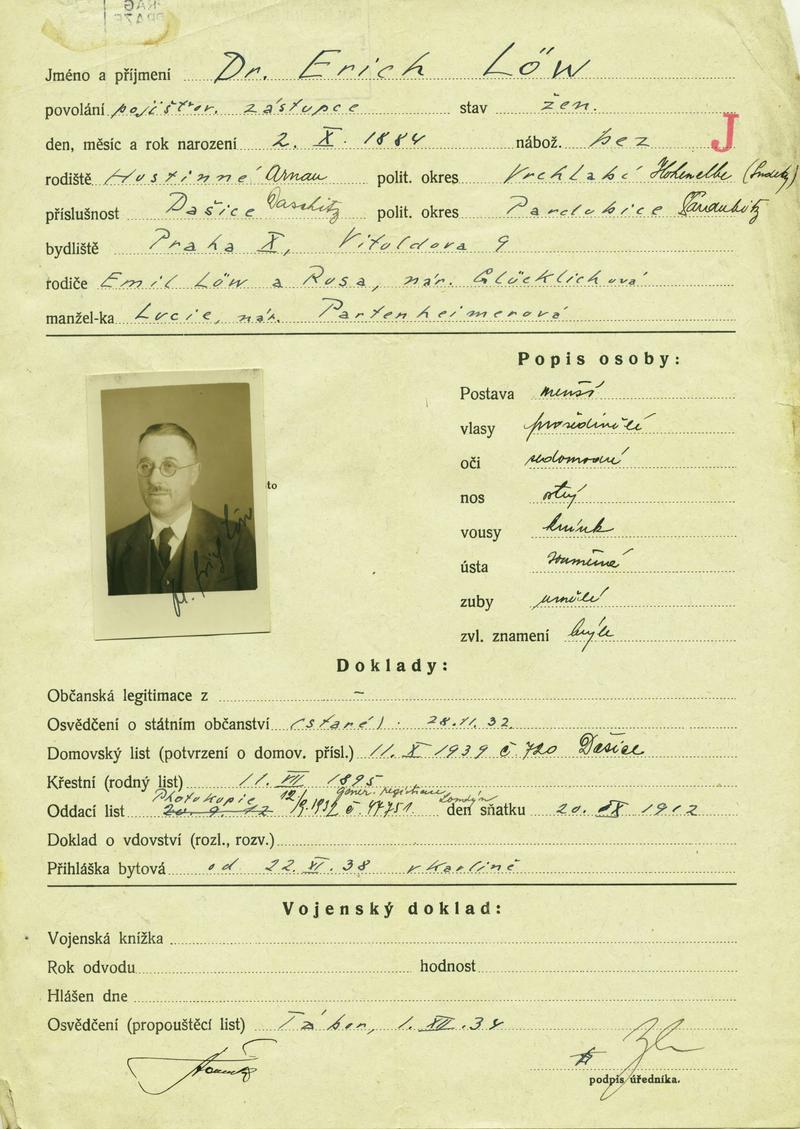 Jméno a příjmení Dr. Erich Löw
povolání pojišťov. zástupce stav žen.
den, měsíc a rok narození 2. X. 1884 nábož. bez J
rodiště Hostinné Arnau polit. okres Vrchlabí Hohenelbe
příslušnost Dašice Daschitz polit. okres Pardubice Pardubitz
bydliště Praha X, Vitoldova 9
rodiče Emil Löw a Rosa, nar. Glücklichová
manžel-ka Lucie, nar. Partenheimerová
Popis osoby:
Postava menší
vlasy prošedivělé
oči šedomodré
nos ostrý
vousy knírek
to
ústa souměrná
zuby umělé
zvl. znamení brýle
Doklady:
Občanská legitimace z –
Osvědčení o státním občanství (staré) 28.11.32.
Domovský list (potvrzení o domov. přísl.) 11. X 1939 č 720 Dašice
Křestní (rodný list) 11. VII 1895
Photokopie 12/9.1932 gener. registrace Londýn
Oddací list 20. 9. 12 č. 44751 den sňatku 20. IX 1912
Doklad o vdovství (rozl., rozv.)
Přihláška bytová od 22. XI. 38 v Karlíně
Vojenský doklad:
Vojenská knížka
Rok odvodu hodnost
Hlášen dne
Osvědčení (propouštěcí list) Tábor, 1. XII. 34
podpis úředníka.